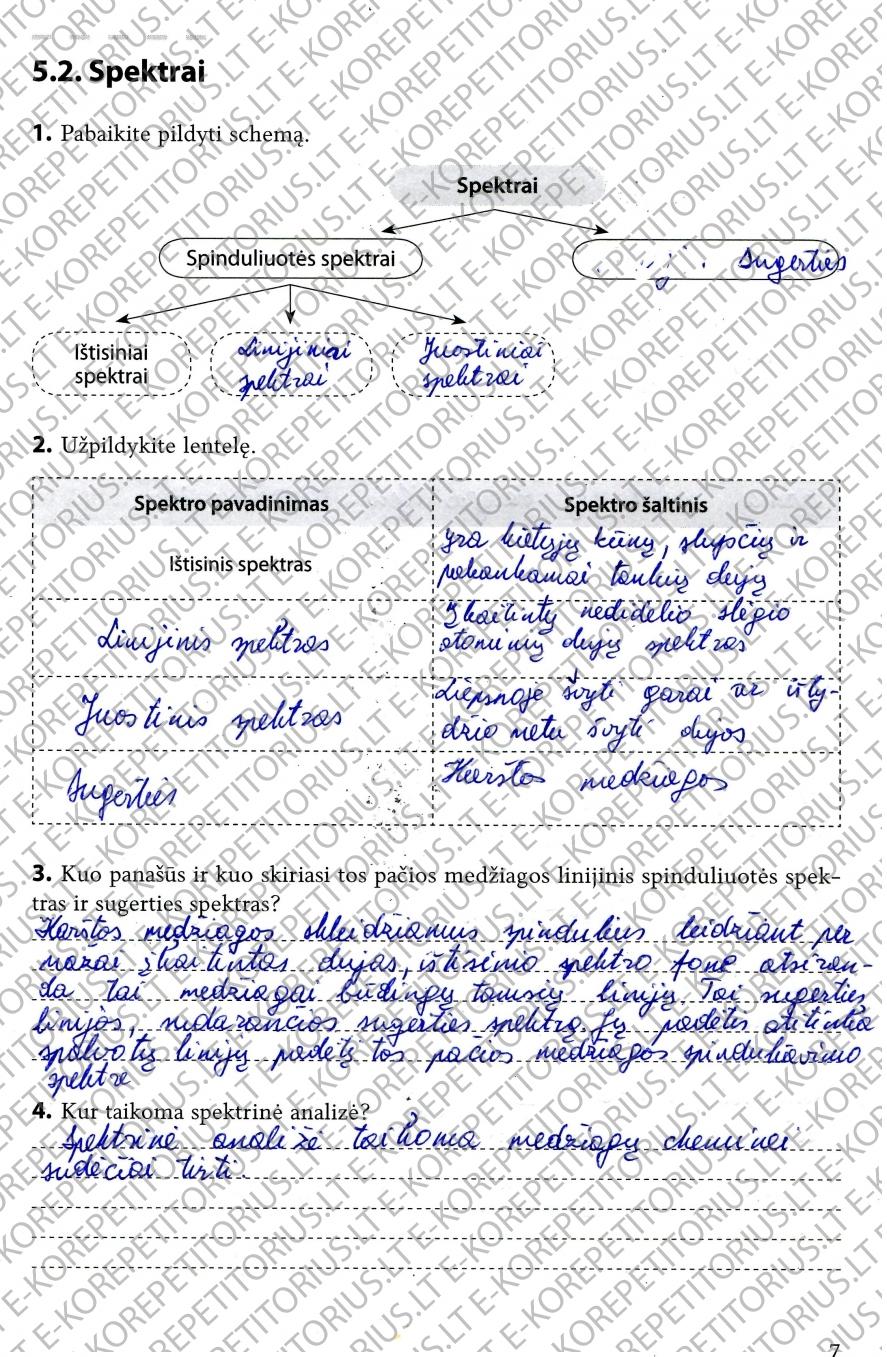 5.2. Spektrai
1. Pabaikite pildyti schemą.
Spektrai
Spinduliuotės spektrai
Sugerties
Ištisiniai
spektrai
Linijiniai
spektrai
Juostiniai
spektrai
2. Užpildykite lentelę.
Spektro pavadinimas
Spektro šaltinis
Ištisinis spektras
yra kietųjų kūnų, skysčių ir
pakankamai tankių dujų
Linijinis spektras
Įkaitintų nedidelio slėgio
atominių dujų spektras
Juostinis spektras
Liepsnoje švyti garai ar išly-
džio metu švyti dujos
Sugerties
Karštos medžiagos
3. Kuo panašūs ir kuo skiriasi tos pačios medžiagos linijinis spinduliuotės spek-
tras ir sugerties spektras?
Karštos medžiagos skleidžiamus spindulius leidžiant per
mažai įkaitintas dujas, ištisinio spektro fone atsiran-
da tai medžiagai būdingų tamsių linijų Tai sugerties
linijos, sudarančios sugerties spektrą. Jų padėtis atitinka
spalvotų linijų padėtį tos pačios medžiagos spinduliavimo
spektre
4. Kur taikoma spektrinė analizė?
Spektrinė analizė taikoma medžiagų cheminei
sudėčiai tirti.
7
E-KOREPETITORIUS.LT